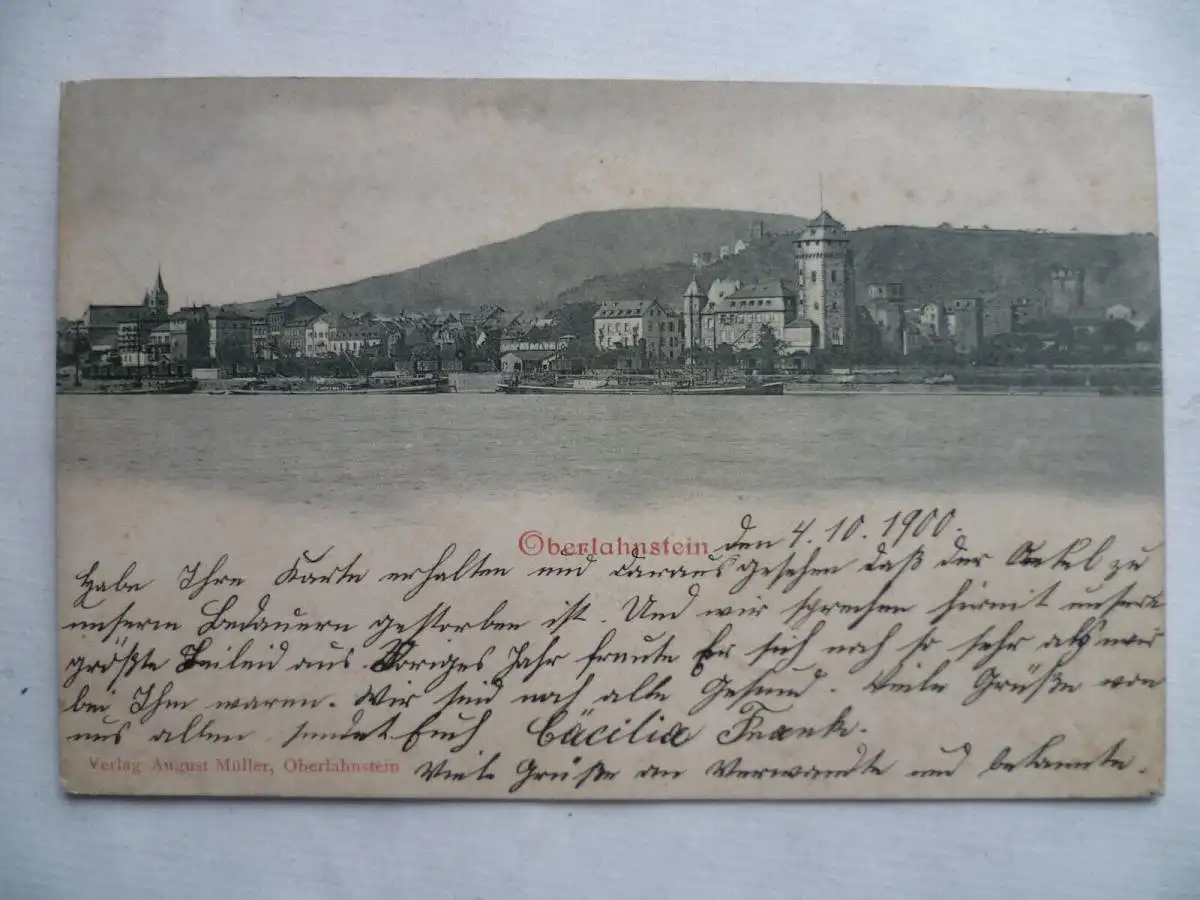 Oberlahnstein
den 4. 10. 1900.
Habe Ihre Karte erhalten und daraus gesehen daß der Onkel zu
unserm Bedauern gestorben ist. Und wir sprechen hirmit unsere
größte Beileid aus. Voriges Jahr freute Er sich noch so sehr als wir
bei Ihm waren. Wir sind noch alle Gesund. Viele Grüße von
uns allen sendet Euch Cäcilia Frank.
Viele Grüße an Verwandte und bekannte.
Verlag August Müller, Oberlahnstein